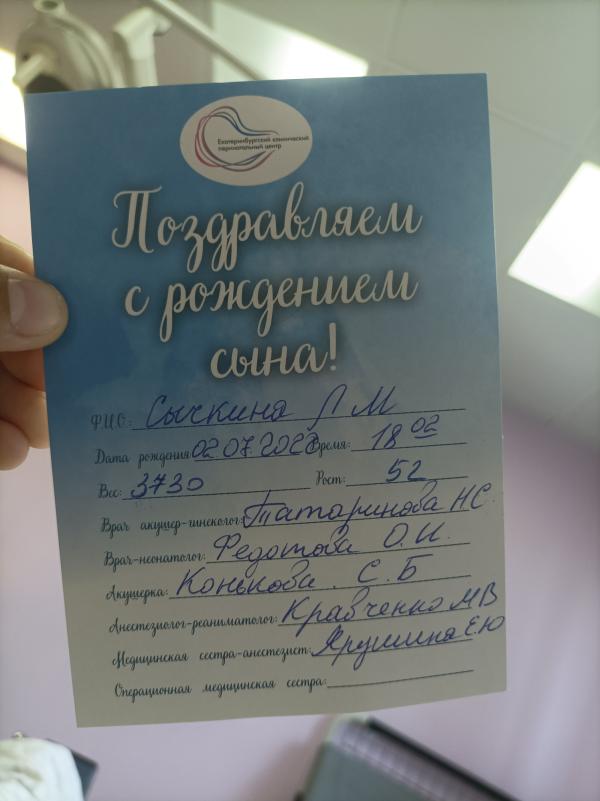 Екатеринбургский клинический
перинатальный центр
Поздравляем
с рождением
сына!
Ф.И.О.: Сычкина Л М
Дата рождения: 02.07.202 Время: 18 02
Вес: 3730 Рост: 52
Врач акушер-гинеколог: Татаринова Н.С.
Врач-неонатолог: Федотова О.И.
Акушерка: Конькова С.Б
Анестезиолог-реаниматолог: Кравченко М В
Медицинская сестра-анестезист: Ярушина Е.Ю
Операционная медицинская сестра: